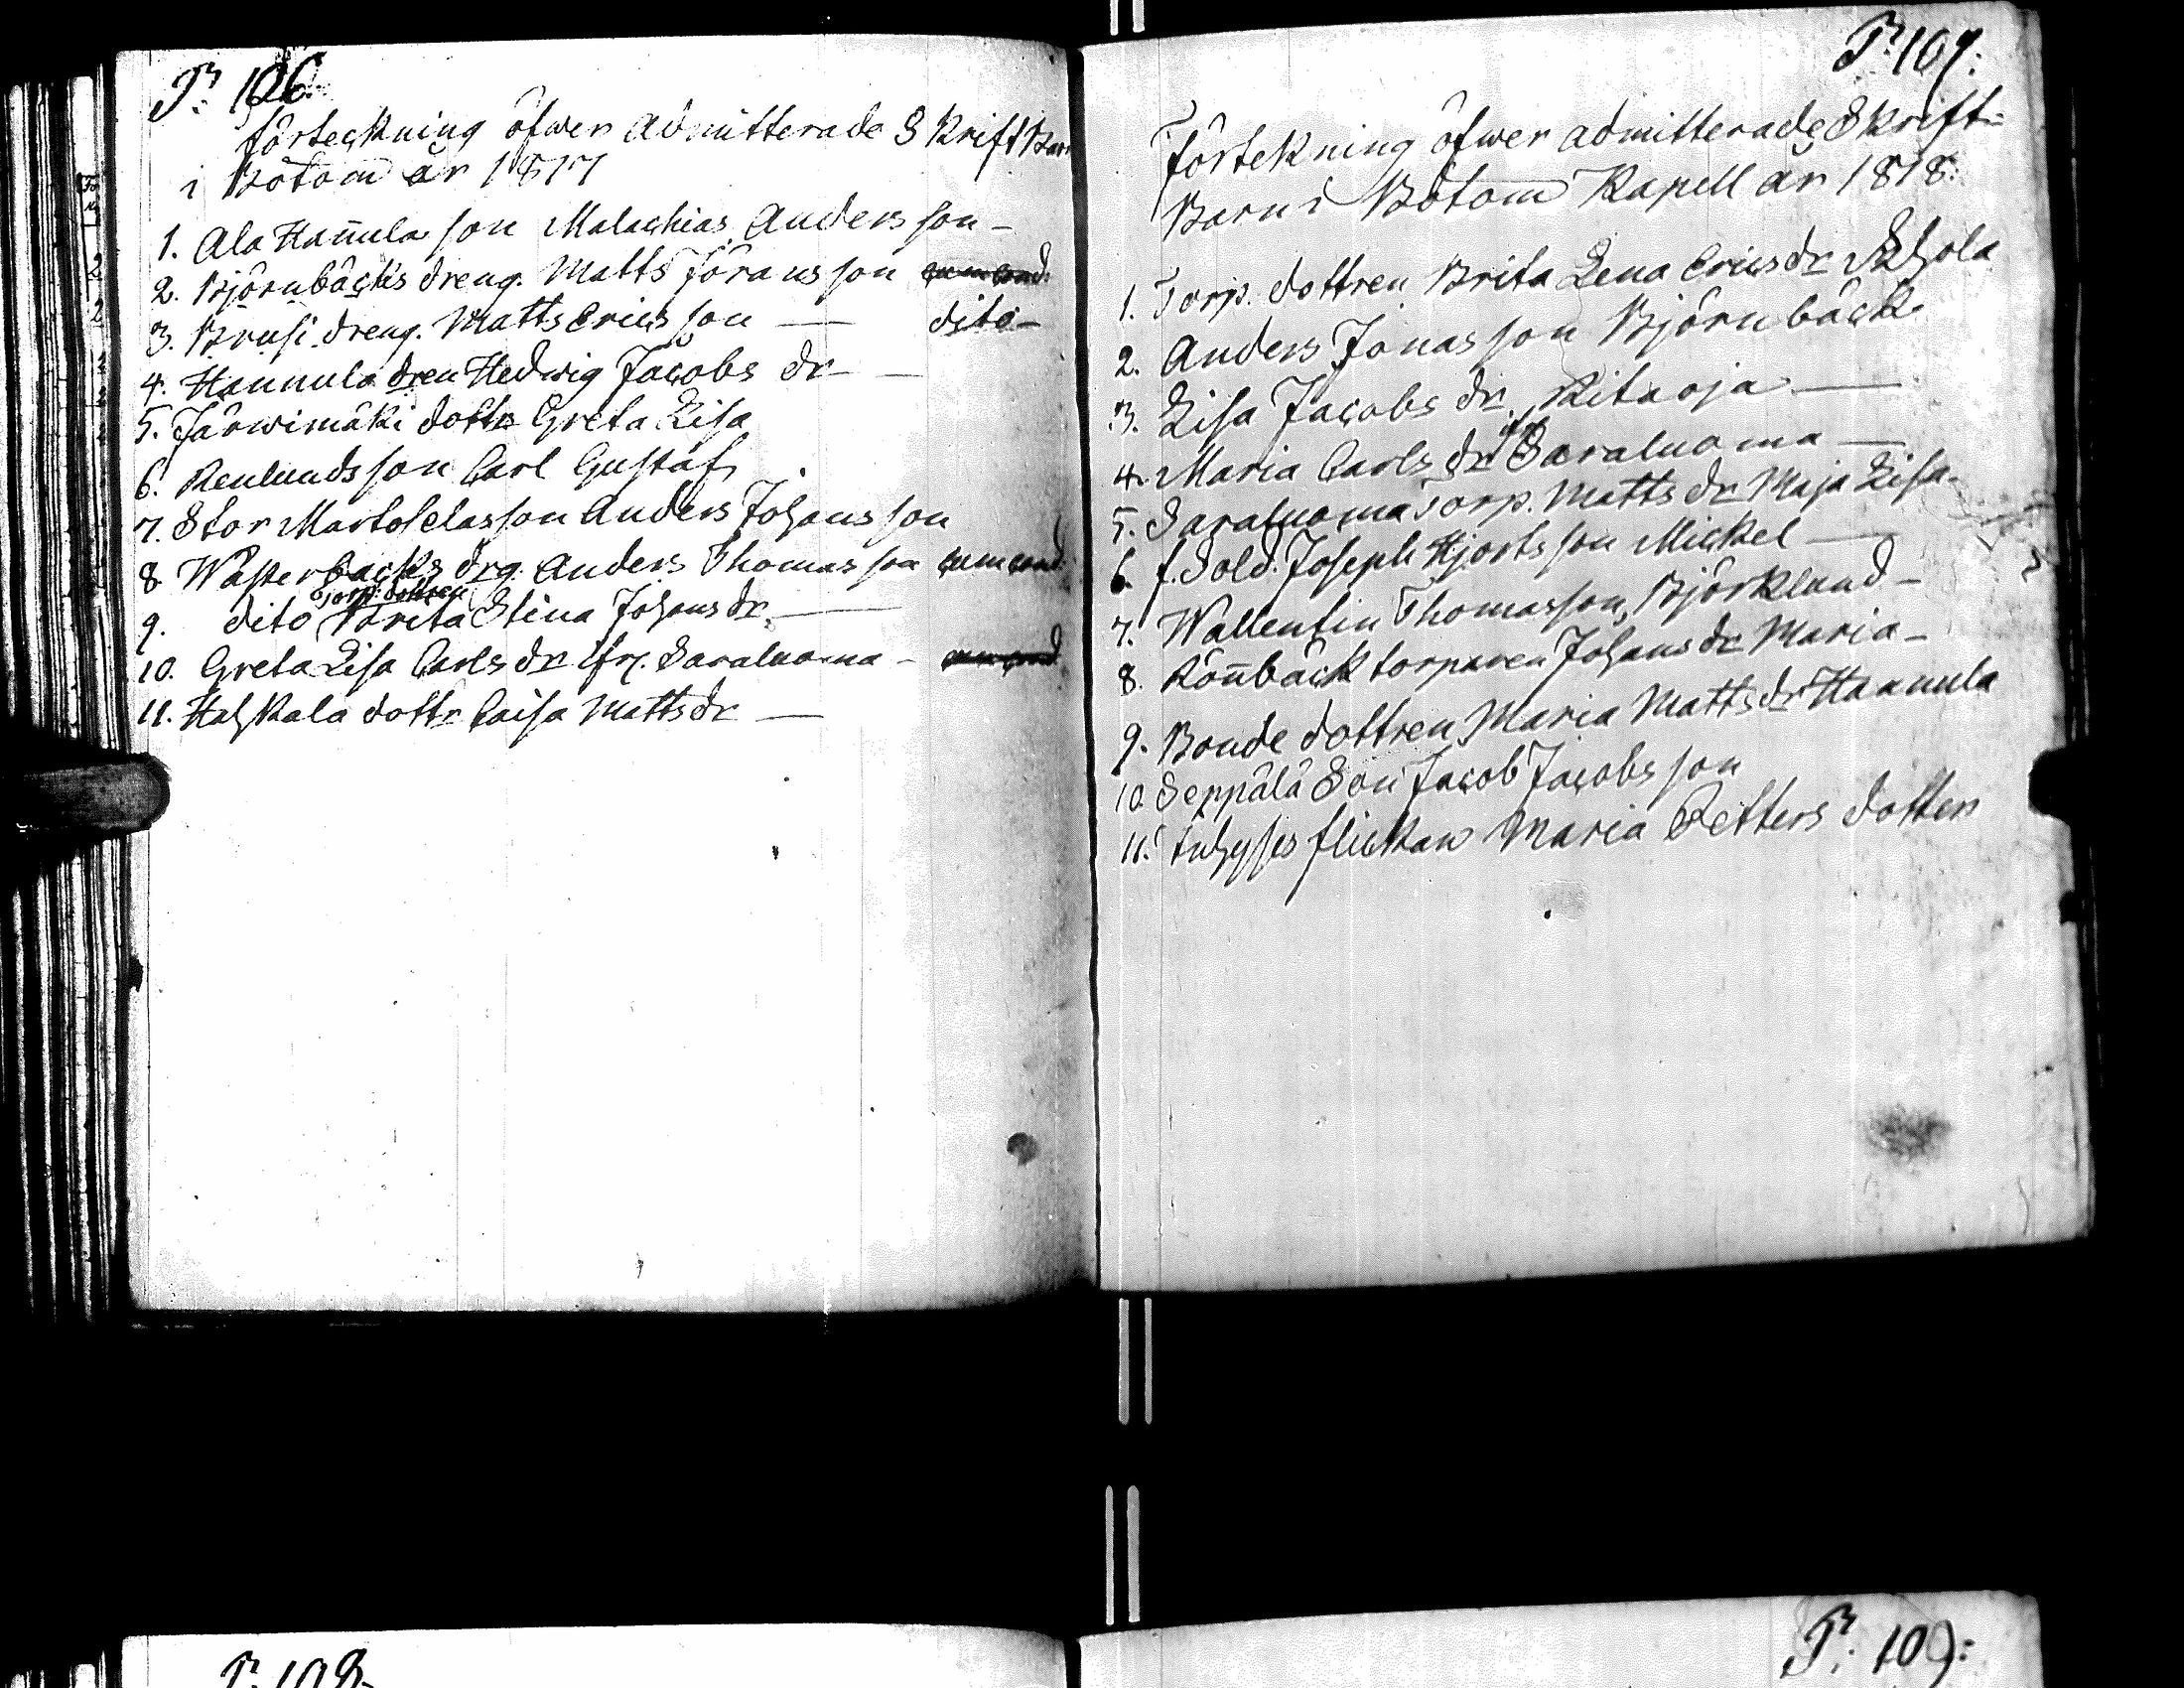 P. 106.
förteckning öfwer Admitterade Skrift Barn
i Bötom år 1817
1. Ala Hannula son Malachias Andersson —
2. Björnbäcks dreng. Matts Jöransson cum cond:
3. Brusi dreng. Matts Ericsson — dito —
4. Hannula dren Hedwig Jacobs dr —
5. Järwimäki dottr Greta Lisa
6. Renlundsson Carl Gustaf
7. Stor Martolelasson Anders Johansson
8. Wästerbacks drg. Anders Thomasson cum cond:
torp: dottren
9. dito Brita Stina Johans dr. —
10. Greta Lisa Carls dr ifr. Saraluoma — cum cond
11. Hahkala dottr Caisa Matts dr —
P. 107:
Förtekning öfwer admitterade Skrift=
Barn i Bötom Kapell år 1818:
1. Torp. dottren Brita Lena Erics dr
2. Anders Jonasson Björnbäck
3. Lisa Jacobs dr. Ritaoja —
4. Maria Carls dr ifr Saraluoma —
5. Saraluoma Torp. Matts dr Maja Lisa —
6. f. Sold. Joseph Hjorts son Mickel —
7. Wallentin Thomasson Björklund —
8. Rönnbäck torparen Johans dr Maria —
9. Bonde dottren Maria Matts dr Hannula
10. Seppälä Son Jacob Jacobsson
11. Inhyses flickan Maria Petters dotter
P. 108.
P. 109: